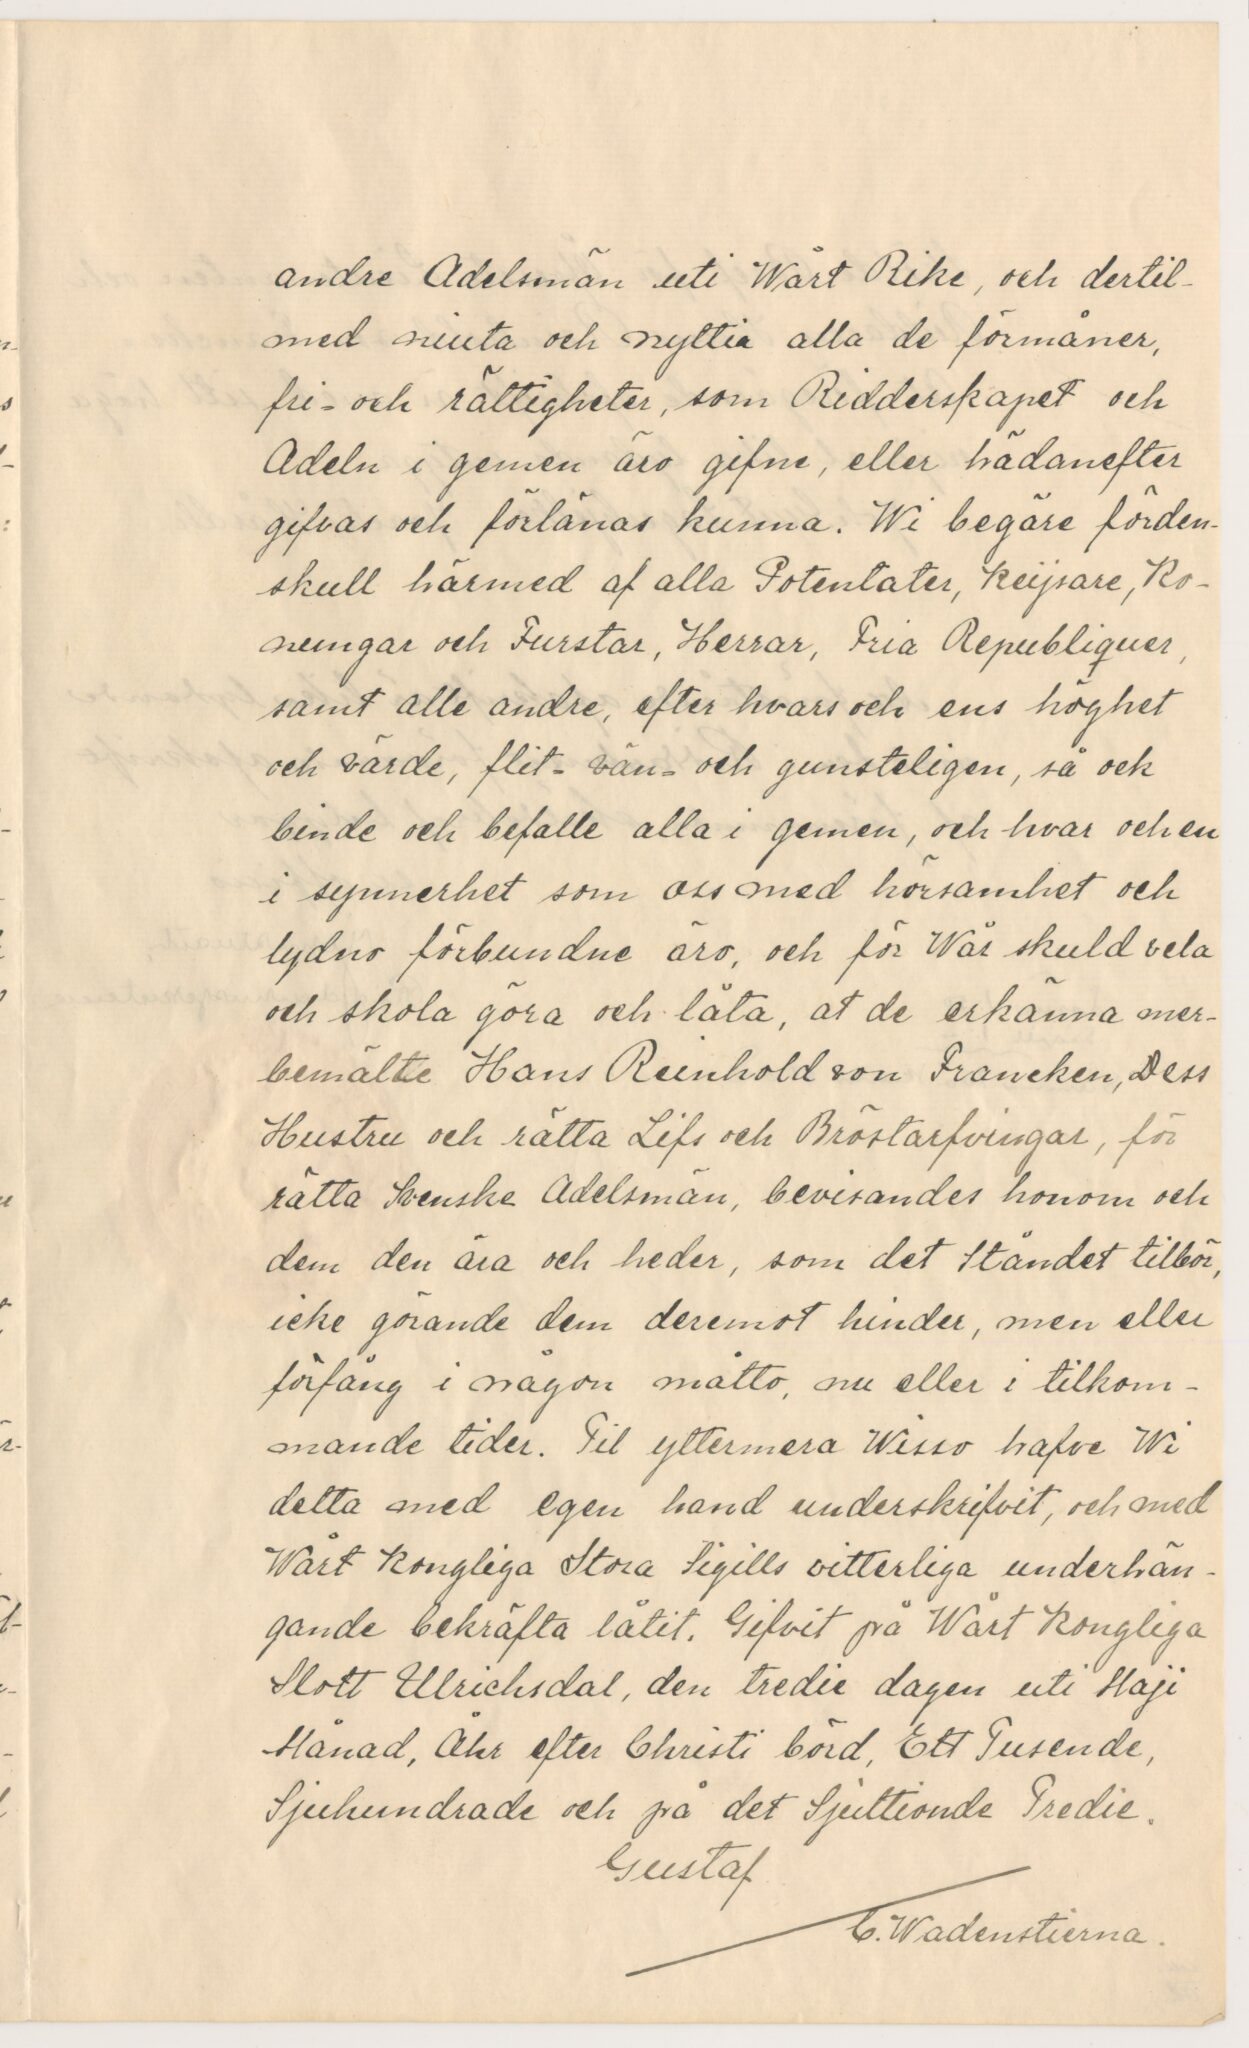 andre Adelsmän uti Wårt Rike, och dertil-
med niuta och nyttia alla de förmåner,
fri- och rättigheter, som Ridderskapet och
Adeln i gemen äro gifne, eller hädanefter
gifvas och förlänas kunna. Wi begäre förden-
skull härmed af alla Potentater, Keijsare, Ko-
nungar och Furstar, Herrar, Fria Republiquer,
samt alle andre, efter hvars och ens höghet
och värde, flit- vän- och gunsteligen, så ock
binde och befalle alla i gemen, och hvar och en
i synnerhet som oss med hörsamhet och
lydno förbundne äro, och för Wår skuld vela
och skola göra och låta, at de erkänna mer-
bemälte Hans Reinhold von Francken, Dess
Hustru och rätta Lifs och Bröstarfvingar, för
rätta Svenske Adelsmän, bevisandes honom och
dem den ära och heder, som det Ståndet tilbör,
icke görande dem deremot hinder, men eller
förfång i någon måtto, nu eller i tilkom-
mande tider. Til yttermera Wisso hafve Wi
detta med egen hand underskrifvit, och med
Wårt Kongliga Stora Sigills vitterliga underhän-
gande bekräfta låtit. Gifvit på Wårt Kongliga
Slott Ulrichsdal, den tredie dagen uti Maji
Månad, Åhr efter Christi börd, Ett Tusende,
Sjuhundrade och på det Sjuttionde Tredie.
Gustaf
C. Wadenstierna.